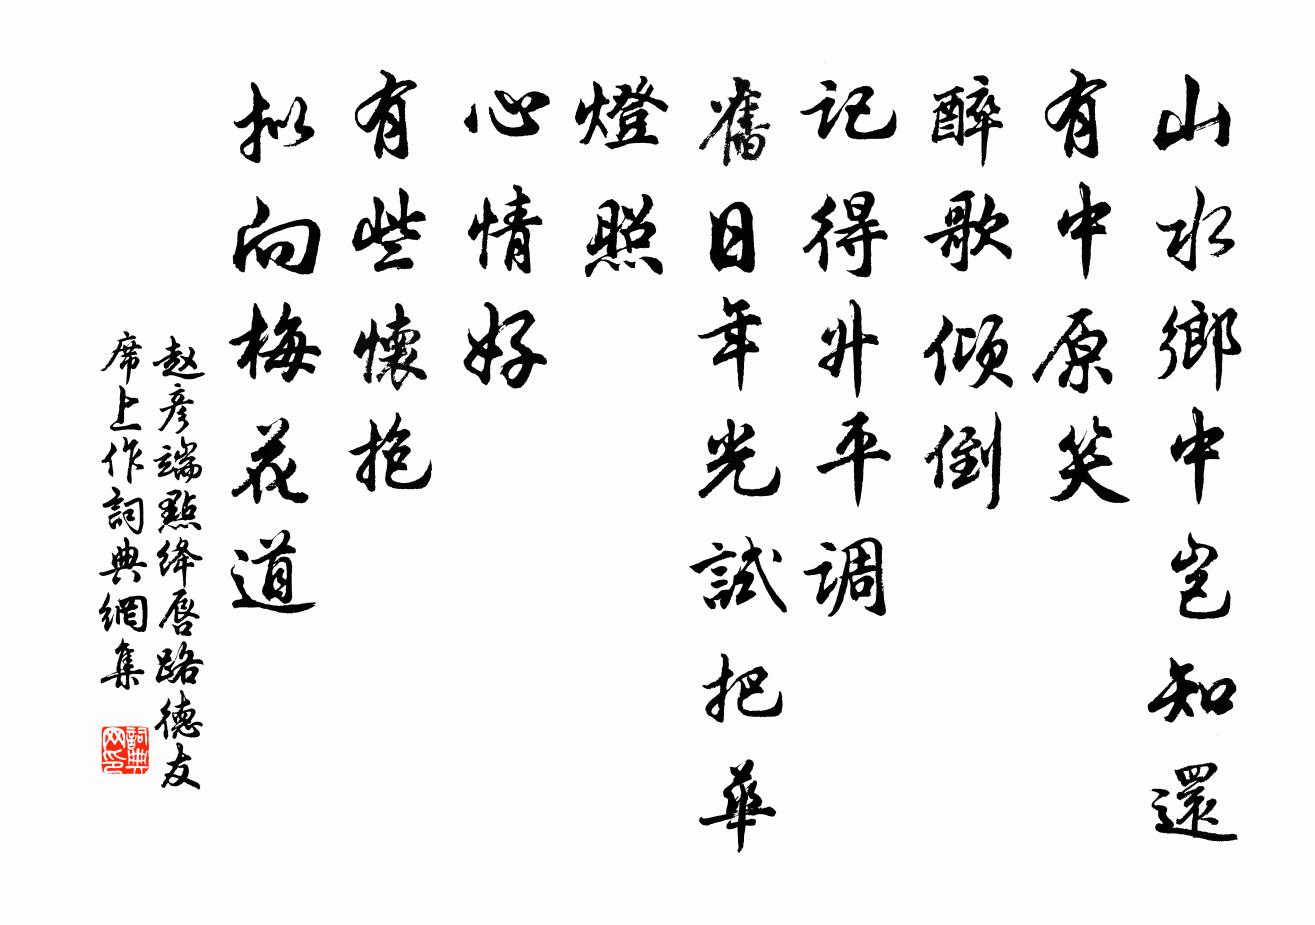 山水鄉中豈知還
有中原笑
醉歌傾倒
记得升平调
舊日年光試把華
燈照
心情好
有些懷抱
拟向梅花道
赵彦端點绛唇路德友
席上作詞典網集
詞典
网印